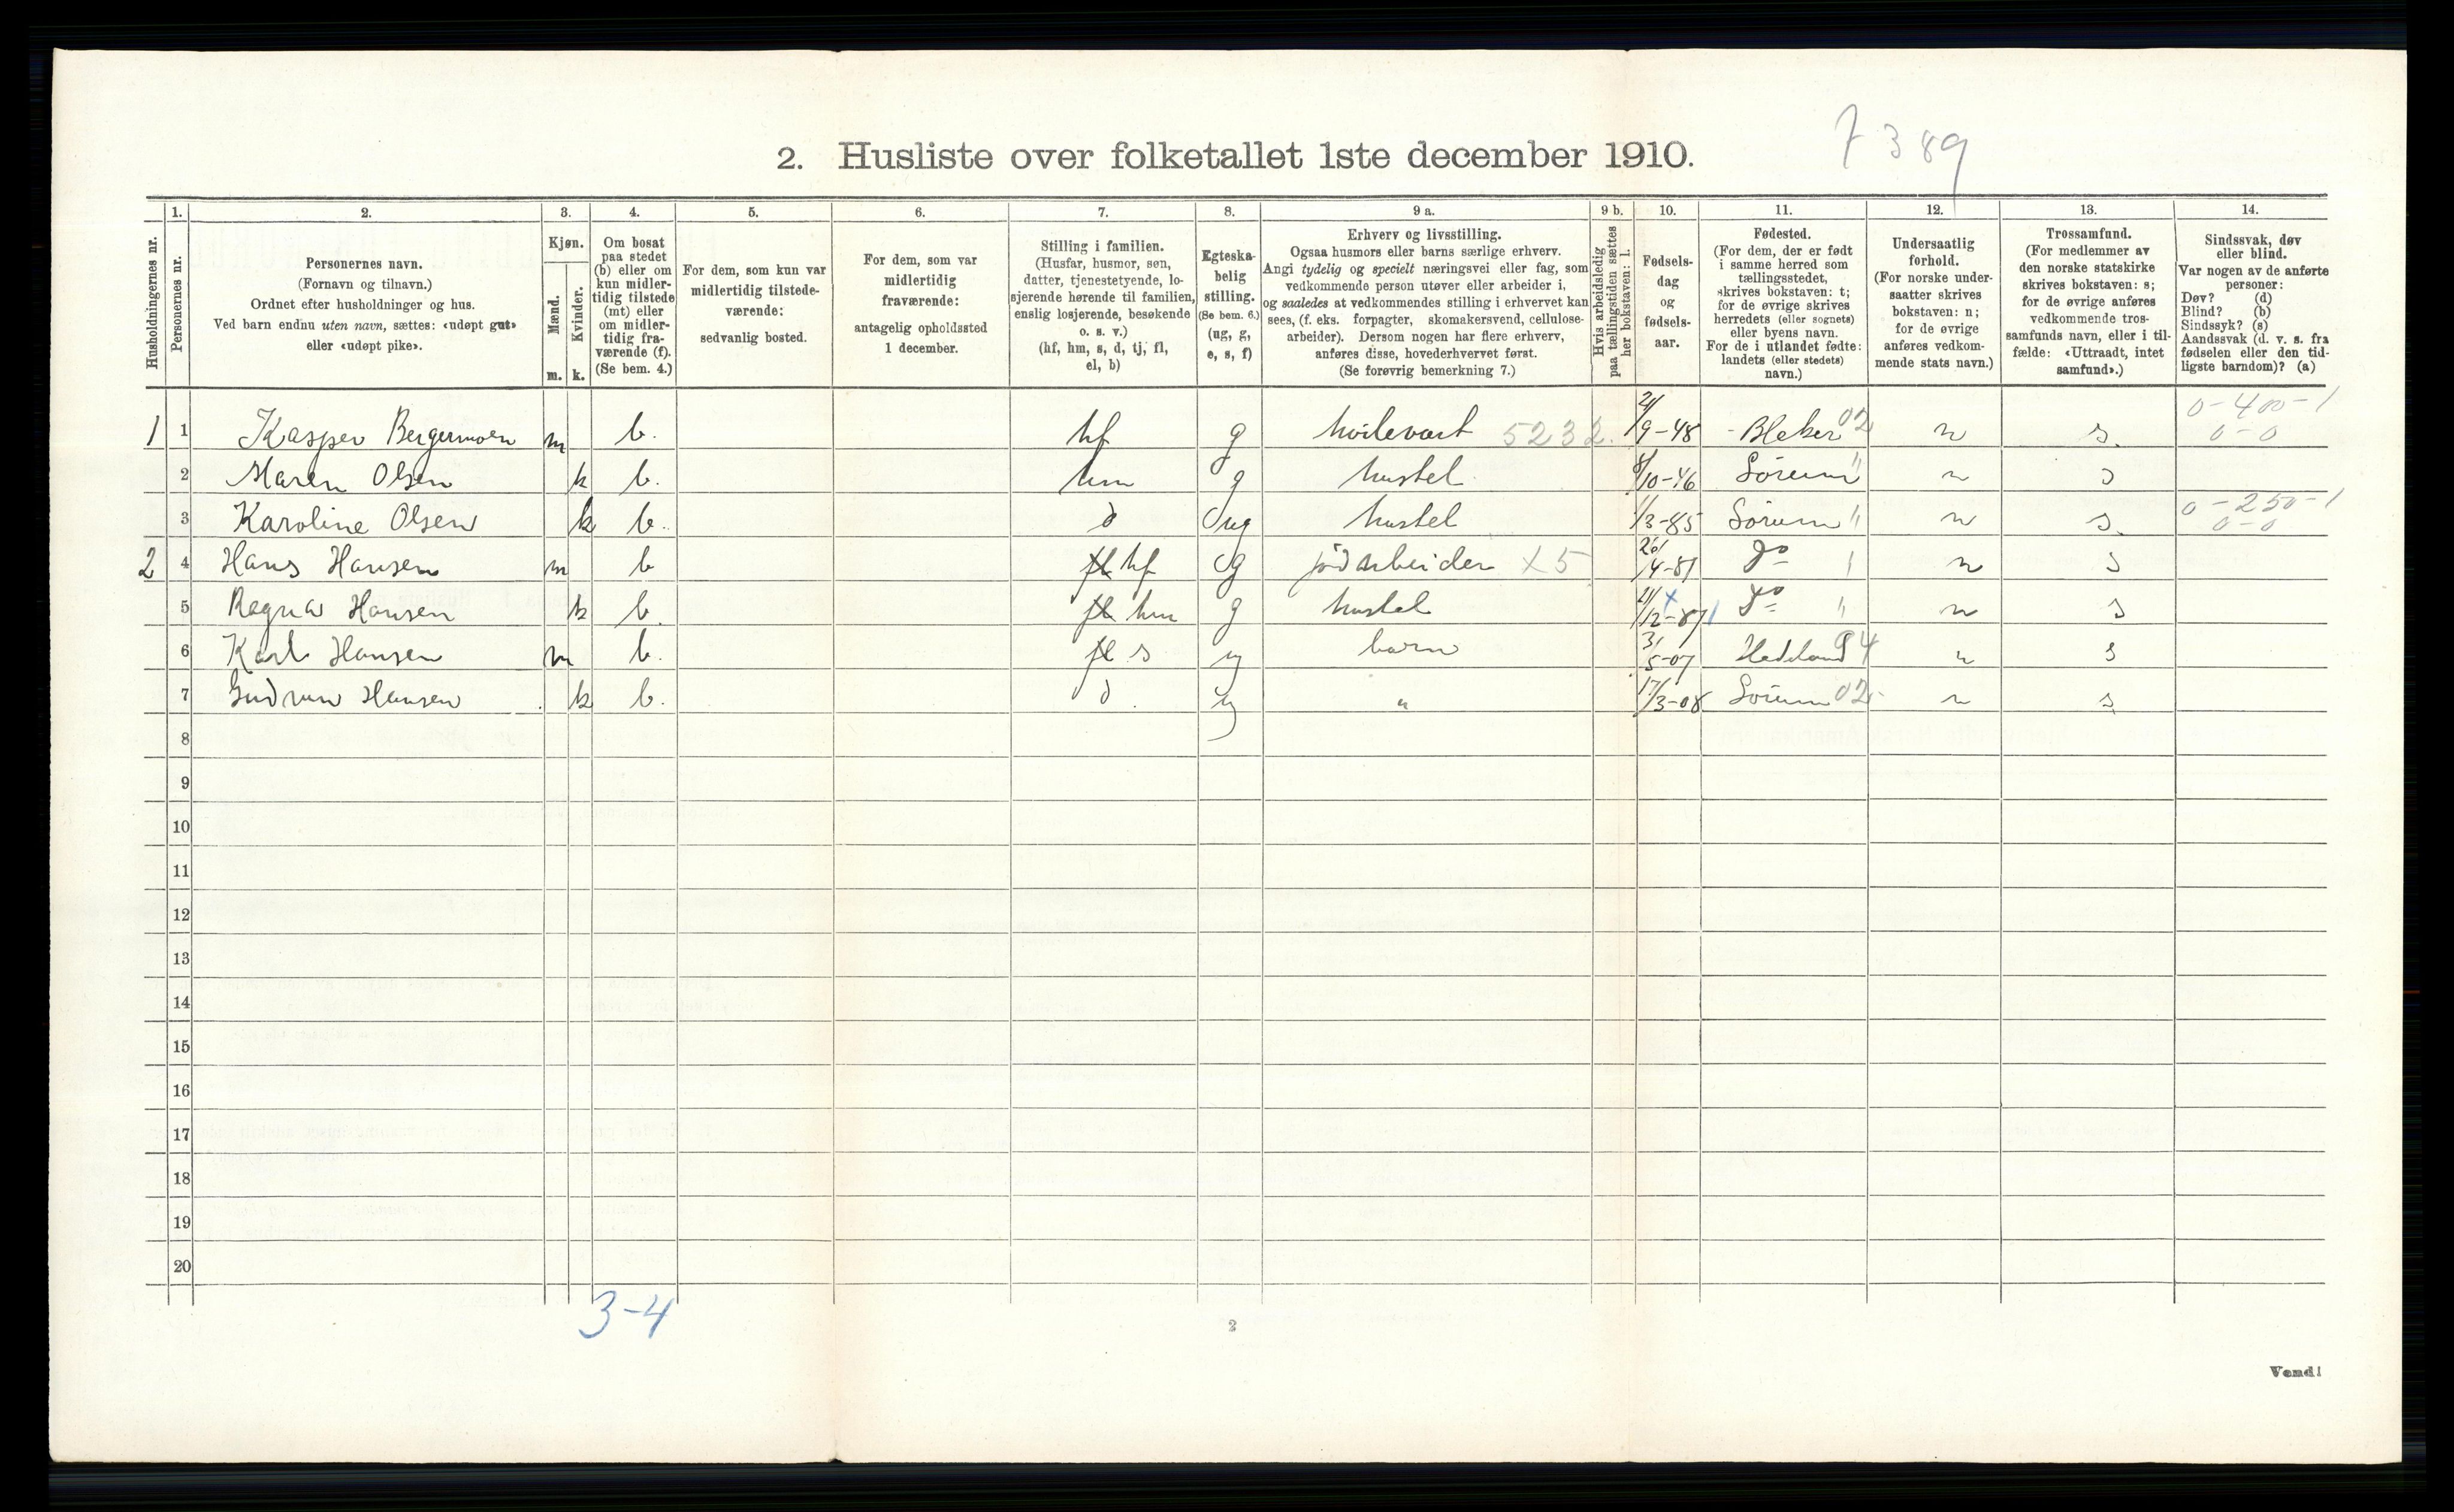 7389
2. Husliste over folketallet 1ste december 1910.
Husholdningernes nr.
1. Personernes nr.
2. Personernes navn.
(Fornavn og tilnavn.)
Ordnet efter husholdninger og hus.
Ved barn endnu uten navn, sættes: «udøpt gut»
eller «udøpt pike».
3. Kjøn.
Mænd. Kvinder.
m. k.
4. Om bosat
paa stedet
(b) eller om
kun midler-
tidig tilstede
(mt) eller
om midler-
tidig fra-
værende (f).
(Se bem. 4.)
5. For dem, som kun var
midlertidig tilstede-
værende:
sedvanlig bosted.
6. For dem, som var
midlertidig
fraværende:
antagelig opholdssted
1 december.
7. Stilling i familien.
(Husfar, husmor, søn,
datter, tjenestetyende, lo-
sjerende hørende til familien,
enslig losjerende, besøkende
o. s. v.)
(hf, hm, s, d, tj, fl,
el, b)
8. Egteska-
belig
stilling.
(Se bem. 6.)
(ug, g,
e, s, f)
9 a. Erhverv og livsstilling.
Ogsaa husmors eller barns særlige erhverv.
Angi tydelig og specielt næringsvei eller fag, som
vedkommende person utøver eller arbeider i,
og saaledes at vedkommendes stilling i erhvervet kan
sees, (f. eks. forpagter, skomakersvend, cellulose-
arbeider). Dersom nogen har flere erhverv,
anføres disse, hovederhvervet først.
(Se forøvrig bemerkning 7.)
9 b. Hvis arbeidsledig
paa tællingstiden sættes
her bokstaven: l.
10. Fødsels-
dag
og
fødsels-
aar.
11. Fødested.
(For dem, der er født
i samme herred som
tællingsstedet,
skrives bokstaven: t;
for de øvrige skrives
herredets (eller sognets)
eller byens navn.
For de i utlandet fødte:
landets (eller stedets)
navn.)
12. Undersaatlig
forhold.
(For norske under-
saatter skrives
bokstaven: n;
for de øvrige
anføres vedkom-
mende stats navn.)
13. Trossamfund.
(For medlemmer av
den norske statskirke
skrives bokstaven: s;
for de øvrige anføres
vedkommende tros-
samfunds navn, eller i til-
fælde: «Uttraadt, intet
samfund».)
14. Sindssvak, døv
eller blind.
Var nogen av de anførte
personer:
Døv? (d)
Blind? (b)
Sindssyk? (s)
Aandssvak (d. v. s. fra
fødselen eller den tid-
ligste barndom)? (a)
1 1 Kasper Bergermoen m b. hf g hvilevært 5232. 21/9-48 - Bleker 02 n s. 0-400-1 0-0
2 Maren Olsen k b. hm g hustel 8/10-46 Sörum " n s
3 Karoline Olsen k b. d ug hustel 1/3-85 Sörum " n s. 0-250-1 0-0
2 4 Hans Hansen m b fl hf g jordarbeider x5 26/4-81 Do " n s
5 Ragna Hansen k b. fl hm g hustel 21/12-87 Do " n s
6 Karl Hansen m b. fl s ug barn 3/5-07 Hadeland 94 n s
7 Gudrun Hansen k b. d ug " 17/3-08 Sörum 02 n s
8
9
10
11
12
13
14
15
16
17
18
19
20
3-4
2
Vend!